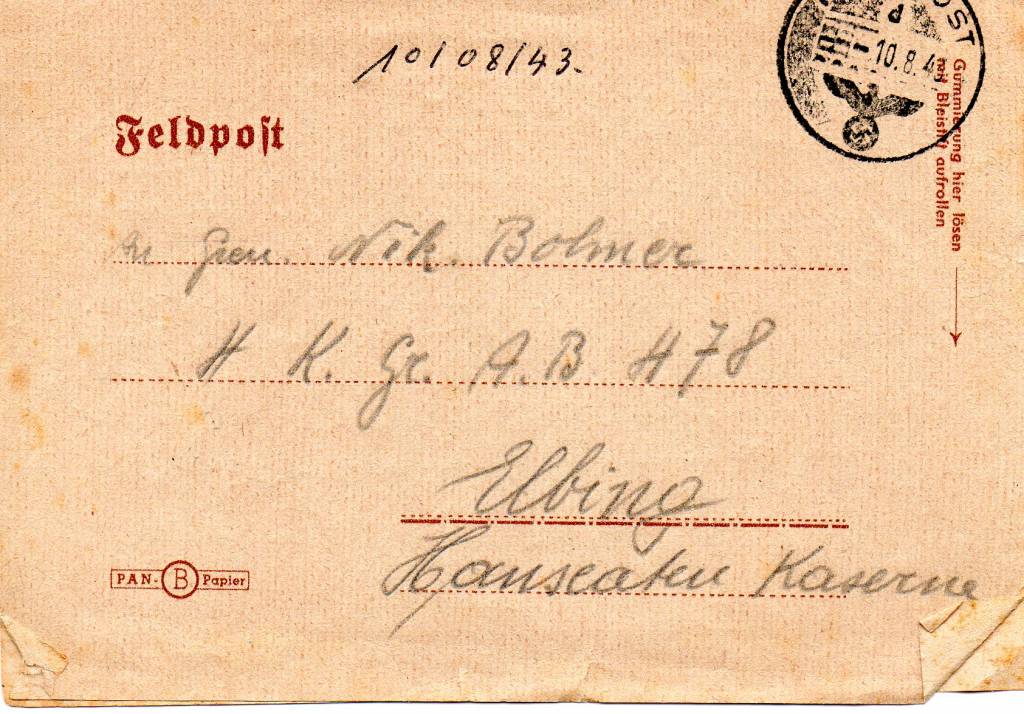 10/08/43.
OST
d
10.8.43
Feldpost
Gummierung hier lösen
mit Bleistift aufrollen
An Gren. Nik. Bolmer
4 K. Gr. A.B 478
Elbing
Hanseaten Kaserne
PAN-B Papier